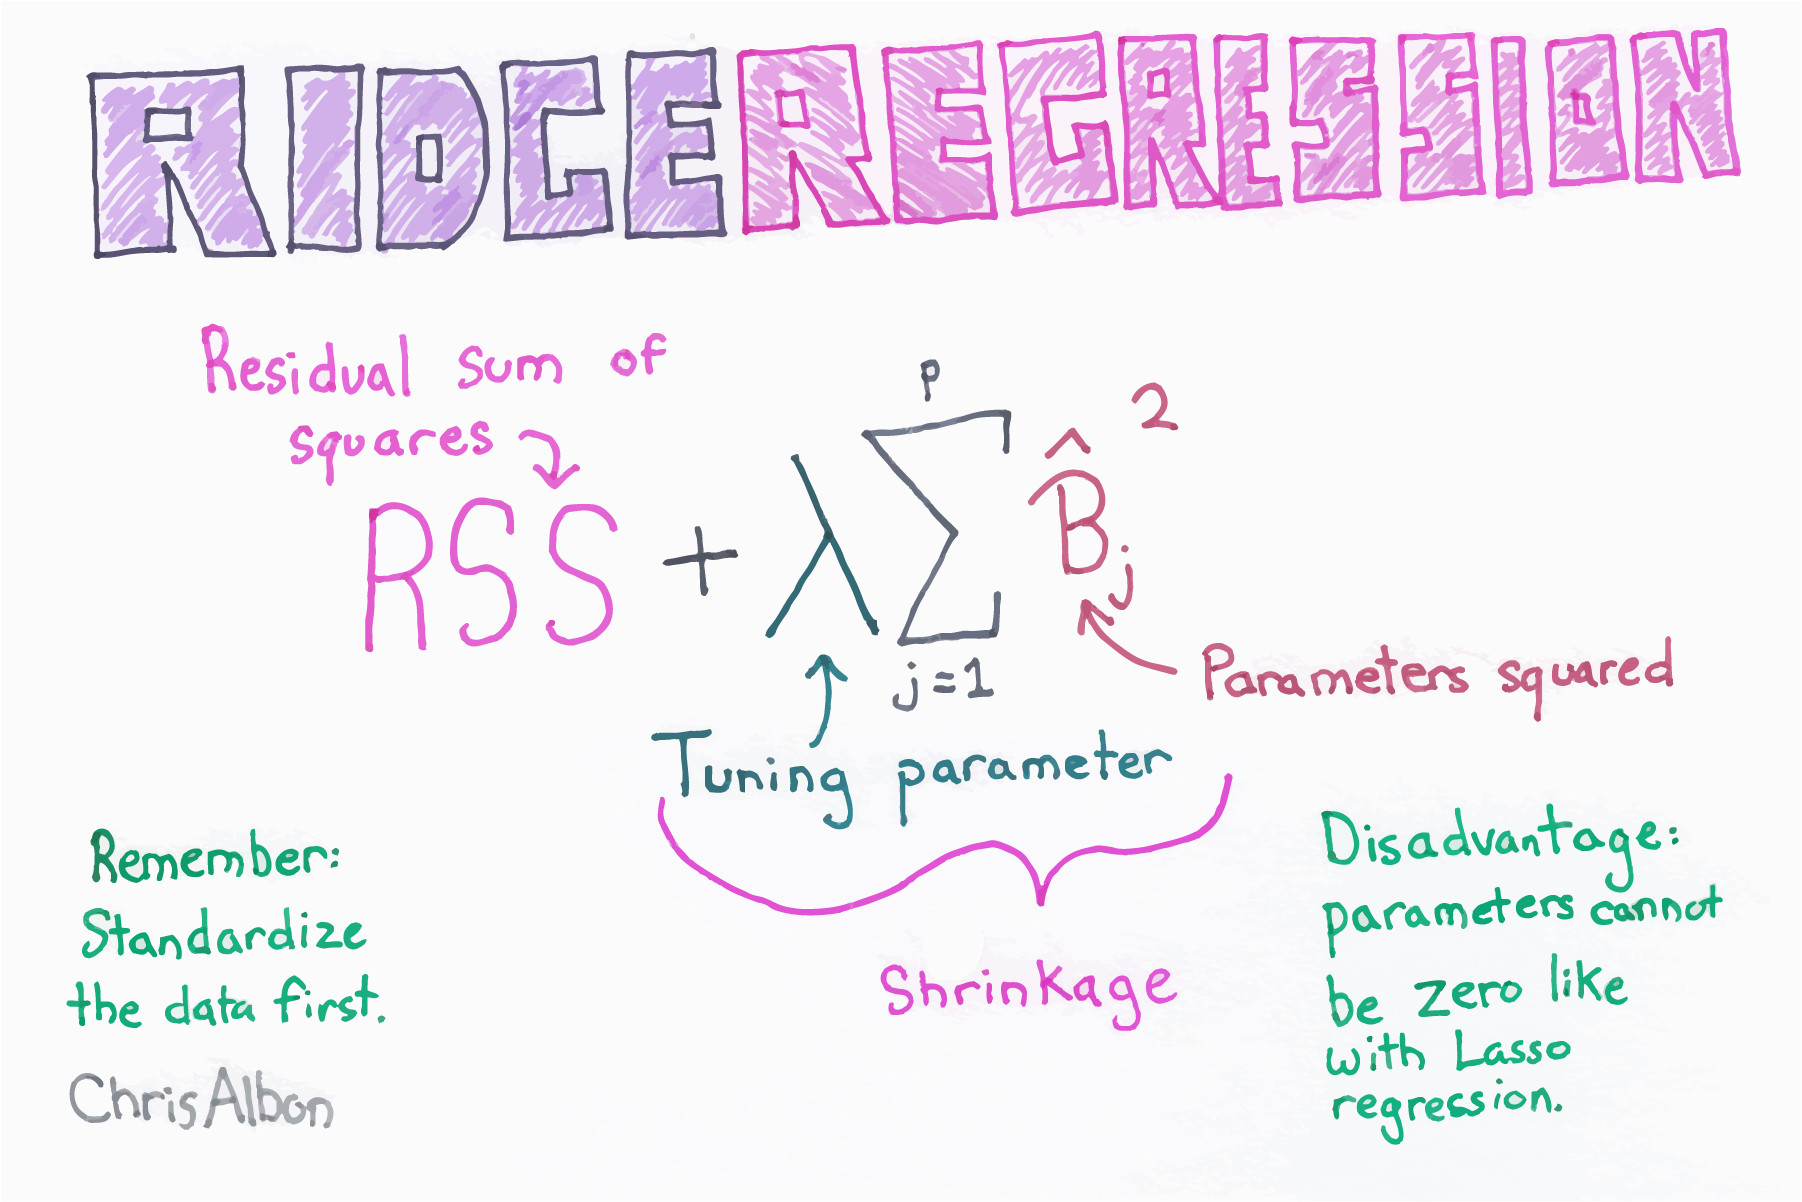 RIDGE REGRESSION
Residual sum of
squares
p
RSS + λ Σ B̂j²
j=1
Parameters squared
Tuning parameter
Shrinkage
Remember:
Standardize
the data first.
Disadvantage:
parameters cannot
be zero like
with Lasso
regression.
ChrisAlbon